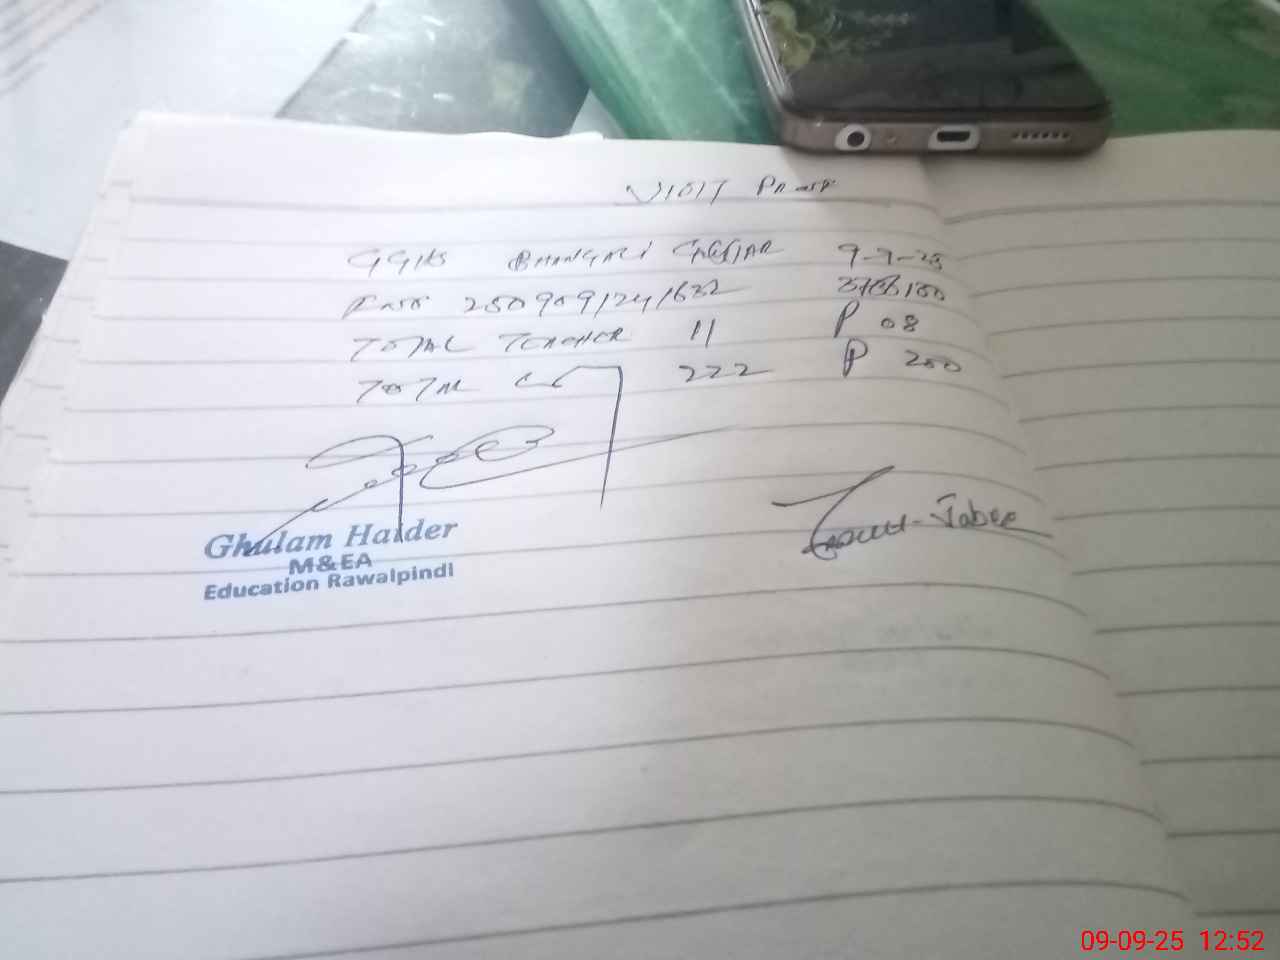 VISIT Proof
GGHS BHANGALI GUJJAR 9-9-25
2509091241632
TOTAL TEACHER 11 P 08
TOTAL 222 P 200
Ghulam Haider
M&EA
Education Rawalpindi
09-09-25 12:52